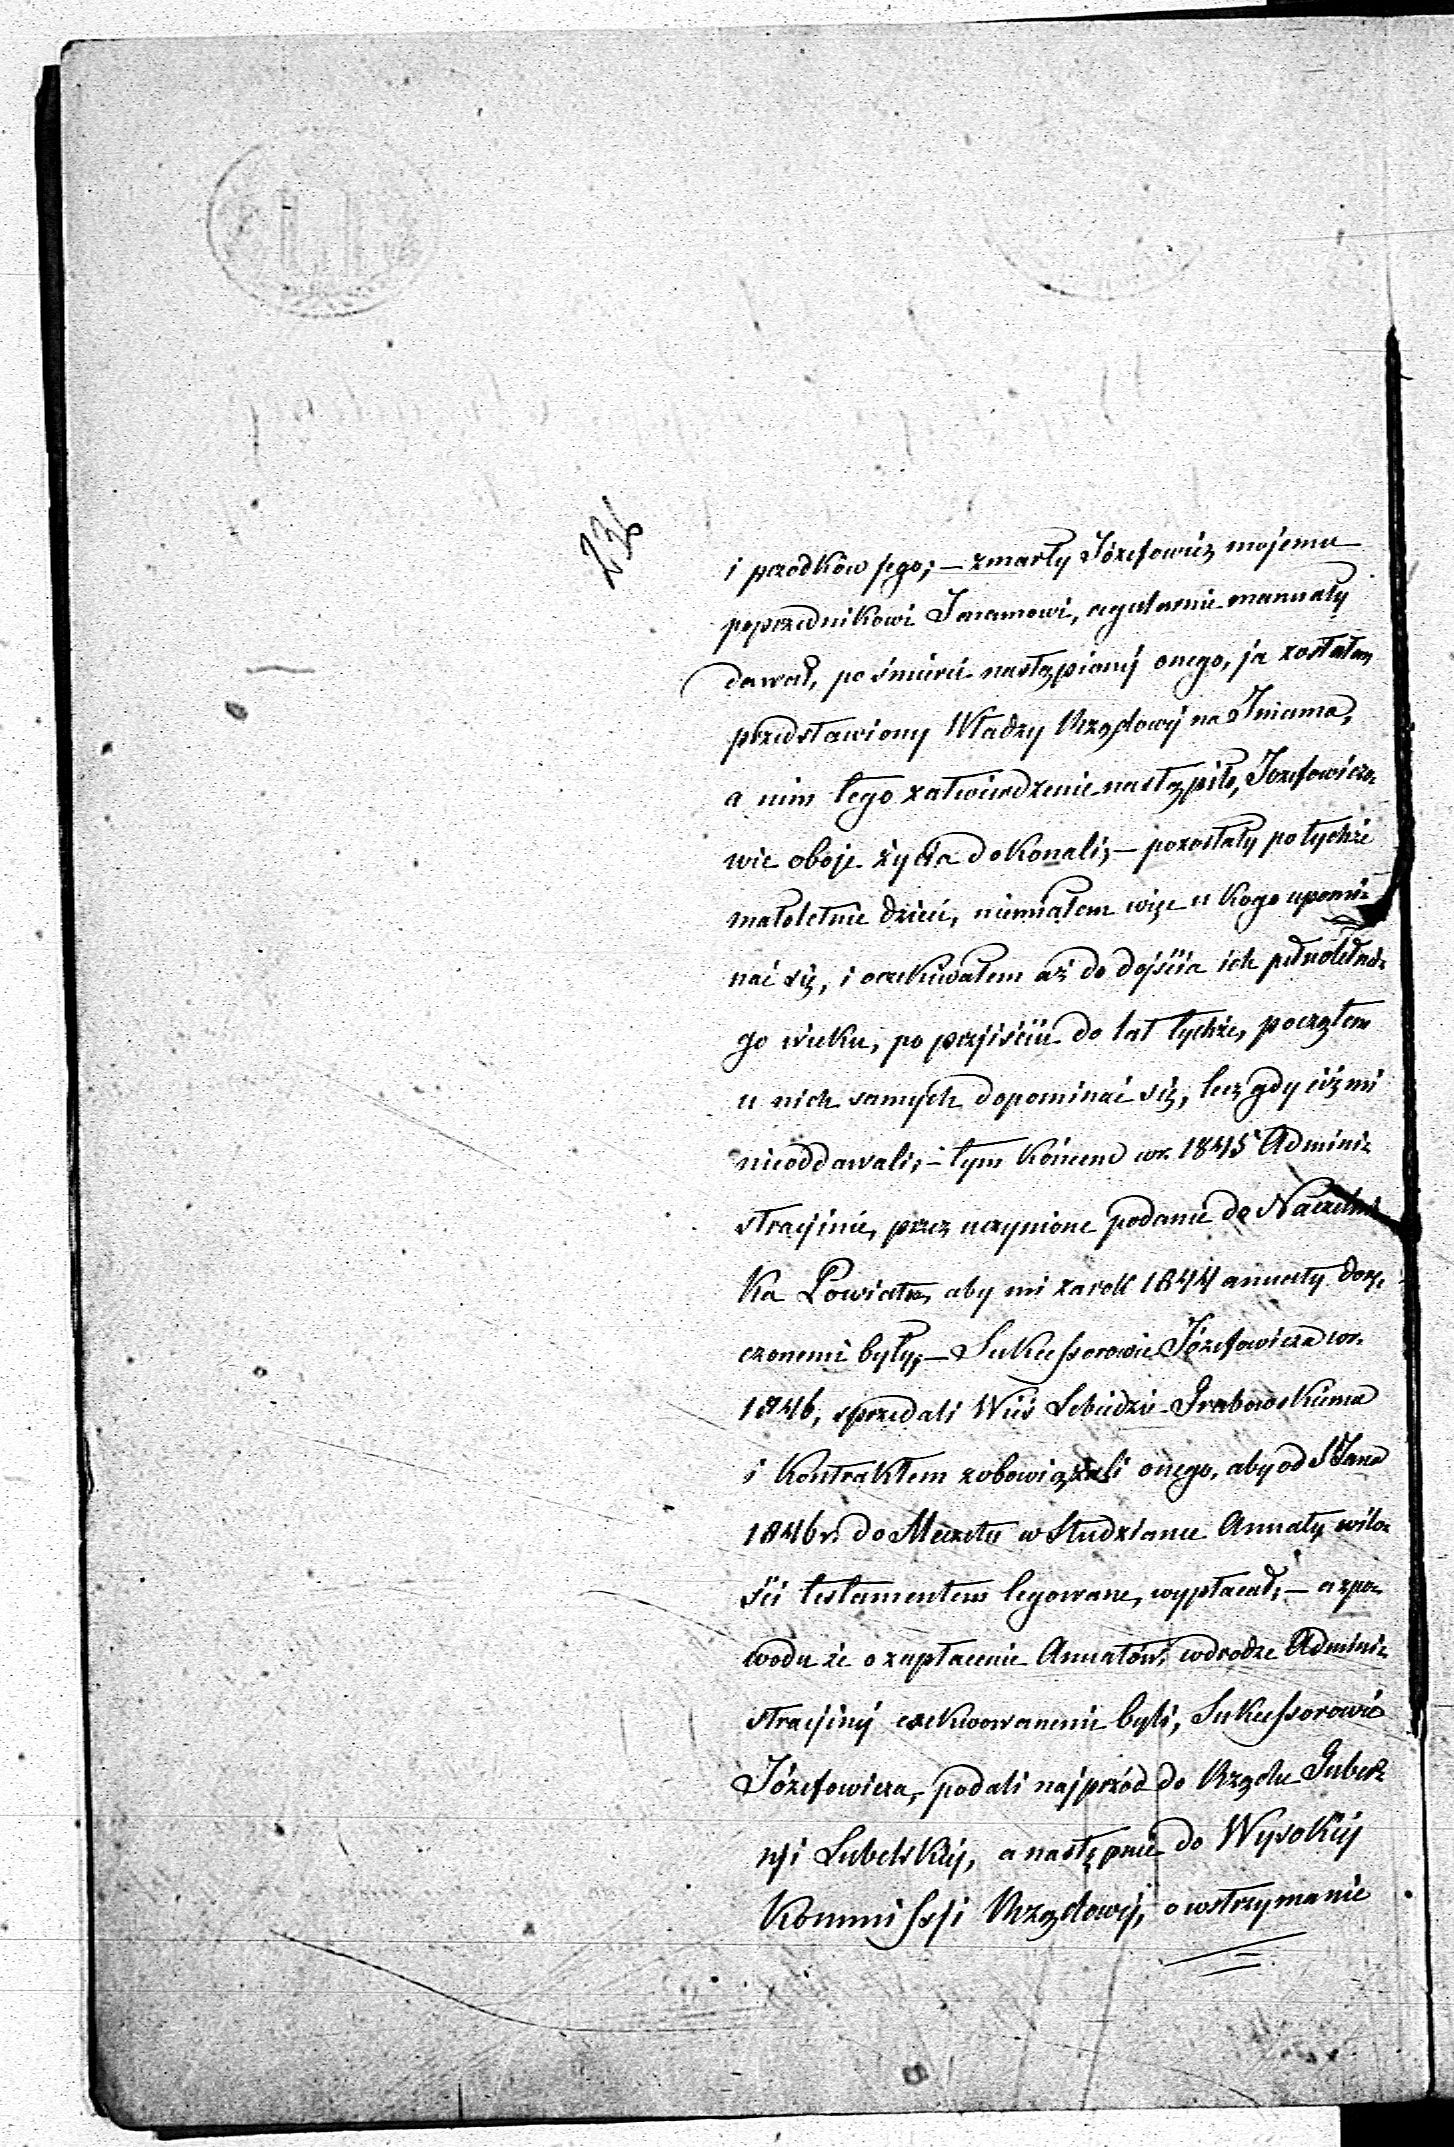 i przodków jego; – zmarły Józefowicz mojemu
poprzednikowi Imamowi, regularnie annuaty
dawał, po śmierci nastąpionej onego, ja zostałem
przedstawiony Władzy Rządowej na Imama,
a nim tego zatwierdzenie nastąpiło, Józefowiczo-
wie oboje życia dokonali; – pozostały po tychże
małoletnie dzieci, niemiałem więc u kogo upomi-
nać się, i oczekiwałem aż do dojścia ich pełnoletnie-
go wieku, po przyjściu do lat tychże, począłem
u nich samych dopominać się, lecz gdy ciż mi
nieoddawali; – tym końcem w r. 1845 Admini-
stracyinie, przez uczynione podanie do Naczelni-
ka Powiatu, aby mi za rok 1844 annuaty dorę-
czonemi były; – Sukcessorowie Józefowicza w r.
1846, sprzedali Wieś Lebiedziew Grabowskiemu
i kontraktem zobowiązali onego, aby od S Jana
1846 r. do Meczetu w Studziance Annuaty, w ilo-
ści testamentem legowane, wypłacał; – a z po-
wodu że o zapłacenie Annatów, w drodze Admini-
stracyinej exekwowanemi byli, Sukcessorowie
Józefowicza, podali najprzód do Rządu Guber-
nji Lubelskiej, a następnie do Wysokiej
Kommissji Rządowej, o wstrzymanie